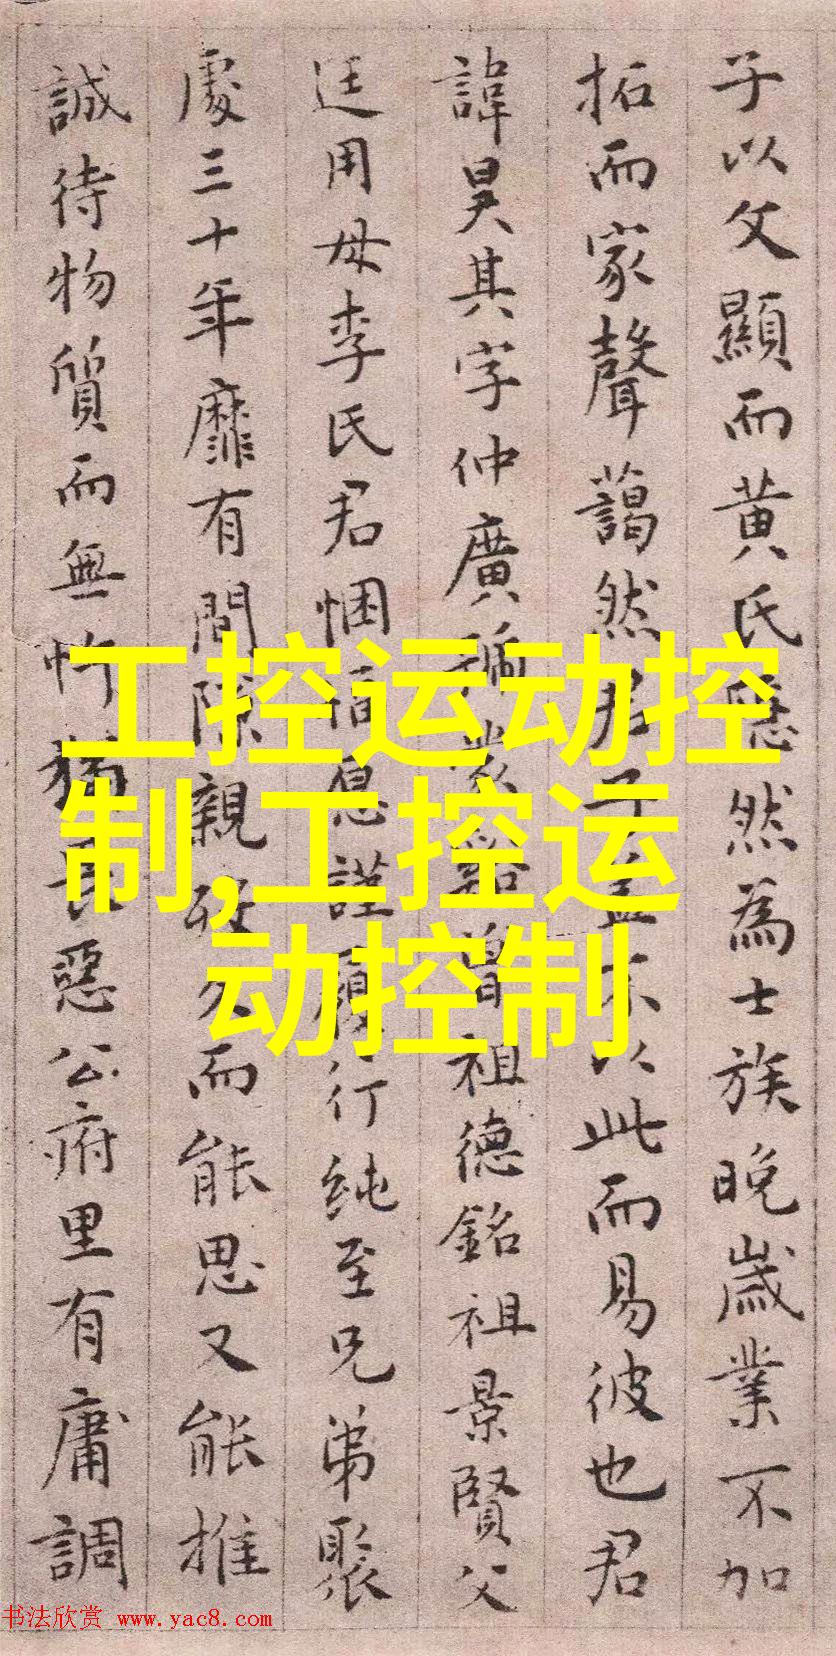 子以父顯而黄氏隱然為士族晚歲業不加
拓而家聲藹然君子盖不以此而易彼也君
諱昊其字仲廣號巖谿曽祖德銘祖景賢父
廷用母李氏君悃愊息謹履行純至兄弟聚
處三十年靡有間隙親殁久而能思又能推
誠待物質而無忤猶長惡公府里有庸調
工控运动控
制,工控运
动控制
书法欣赏 www.yac8.com